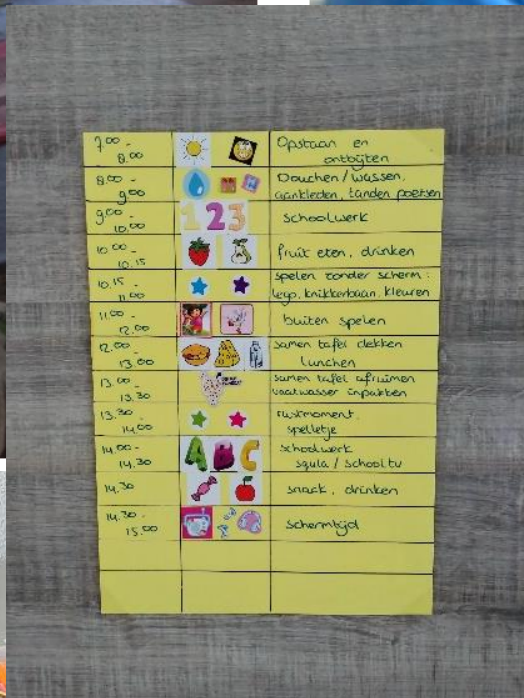 7.00 - 8.00 Opstaan en ontbijten
8.00 - 9.00 Douchen / wassen, aankleden, tanden poetsen
9.00 - 10.00 123 schoolwerk
10.00 - 10.15 fruit eten, drinken
10.15 - 11.00 spelen zonder scherm: lego, knikkerbaan, kleuren
11.00 - 12.00 buiten spelen
12.00 - 13.00 samen tafel dekken lunchen
13.00 - 13.30 samen tafel afruimen vaatwasser inpakken
13.30 - 14.00 rustmoment, spelletje
14.00 - 14.30 ABC schoolwerk squla / schooltv
14.30 snack, drinken
14.30 - 15.00 schermtijd